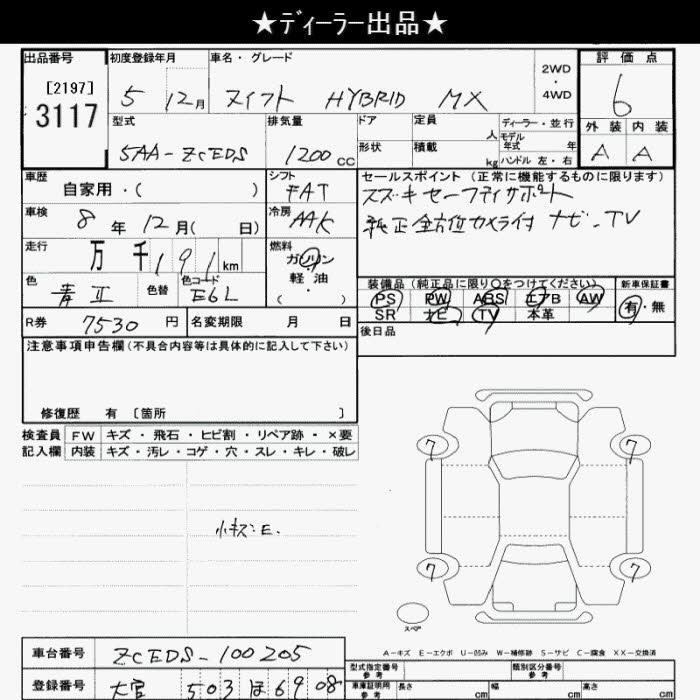 ★ディーラー出品★
出品番号 初度登録年月 車名・グレード 評価点
[2197]
3117
5 12月 スイフト HYBRID MX
2WD
・
4WD
6
型式 排気量 ドア 定員 人 ディーラー・並行 外装 内装
5AA-ZCEDS 1200cc
形状 積載 kg
モデル年式 年式
ハンドル 左・右
A A
車歴 自家用・( )
シフト FAT
セールスポイント(正常に機能するものに限ります)
スズキセーフティサポート
純正全方位カメラ付 ナビ、TV
車検 8年 12月( 日)
冷房 AAK
走行 万 千 191km
燃料 ガソリン・軽油 ( )
色 青Ⅱ 色替 色コード E6L
装備品(純正品に限り○をつけてください) 新車保証書
PS PW ABS エアB AW 有・無
SR ナビ TV 本革
R券 7530円 名変期限 月 日
後日品
注意事項申告欄(不具合内容等は具体的に記入して下さい)
修復歴 有〔箇所 〕
検査員 FW キズ・飛石・ヒビ割・リペア跡・×要
記入欄 内装 キズ・汚レ・コゲ・穴・スレ・キレ・破レ
小キズ:E.
7 7
7 7
スペア
A-キズ E-エクボ U-凹み W-補修跡 S-サビ C-腐食 XX-交換済
車台番号 ZCEDS-100205
型式指定番号 参考 類別区分番号 参考
登録番号 大宮 503 ほ 6908
車庫証明用 参考 長さ cm 幅 cm 高さ cm